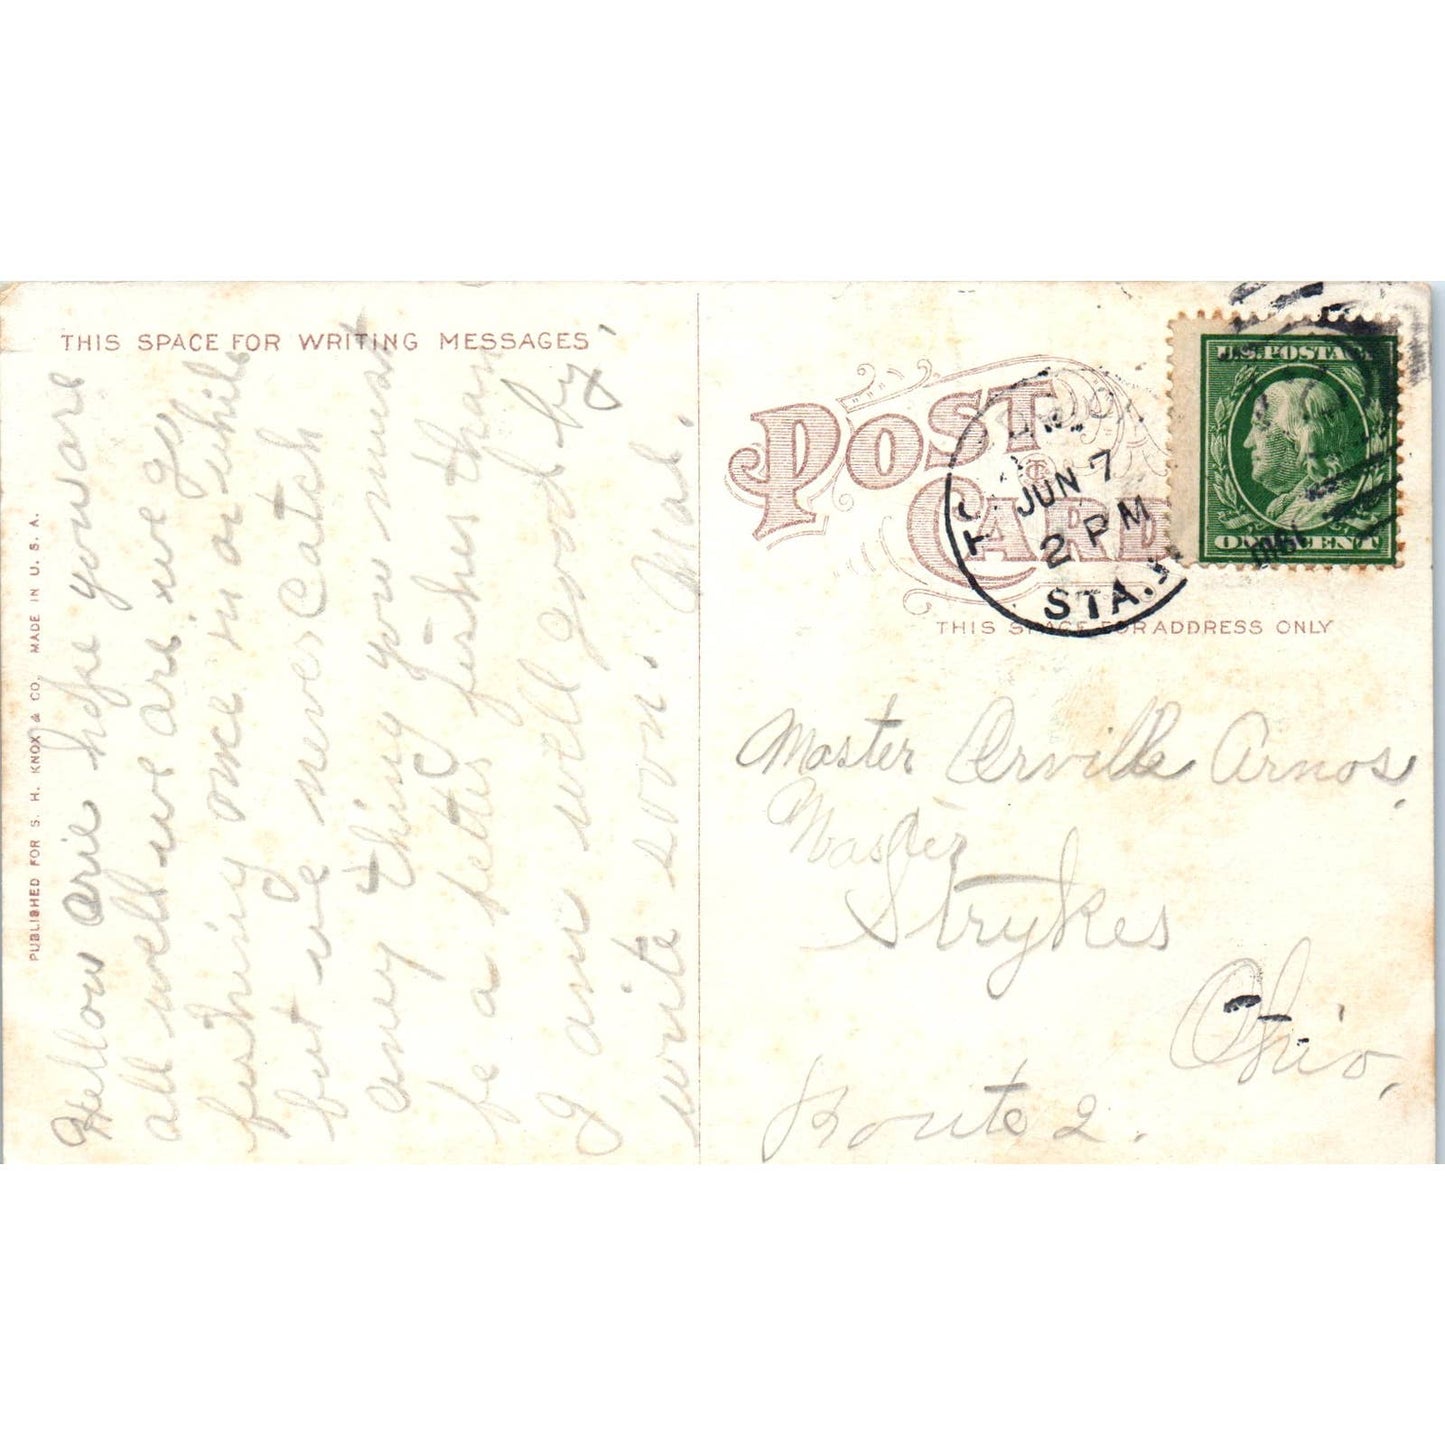 THIS SPACE FOR WRITING MESSAGES
Hellow Orie hope you are
all well we are we go
fishing once in a while
but we never catch
aney thing you must
be a better fisher than
I am well good by
write soon. Mal.
PUBLISHED FOR S. H. KNOX & CO. MADE IN U. S. A.
POST
CARD
JUN 7
2 PM
STA.
U.S. POSTAGE
ONE CENT
THIS SPACE FOR ADDRESS ONLY
Master Orville Arnos,
Master
Strykes
Ohio,
Route 2.